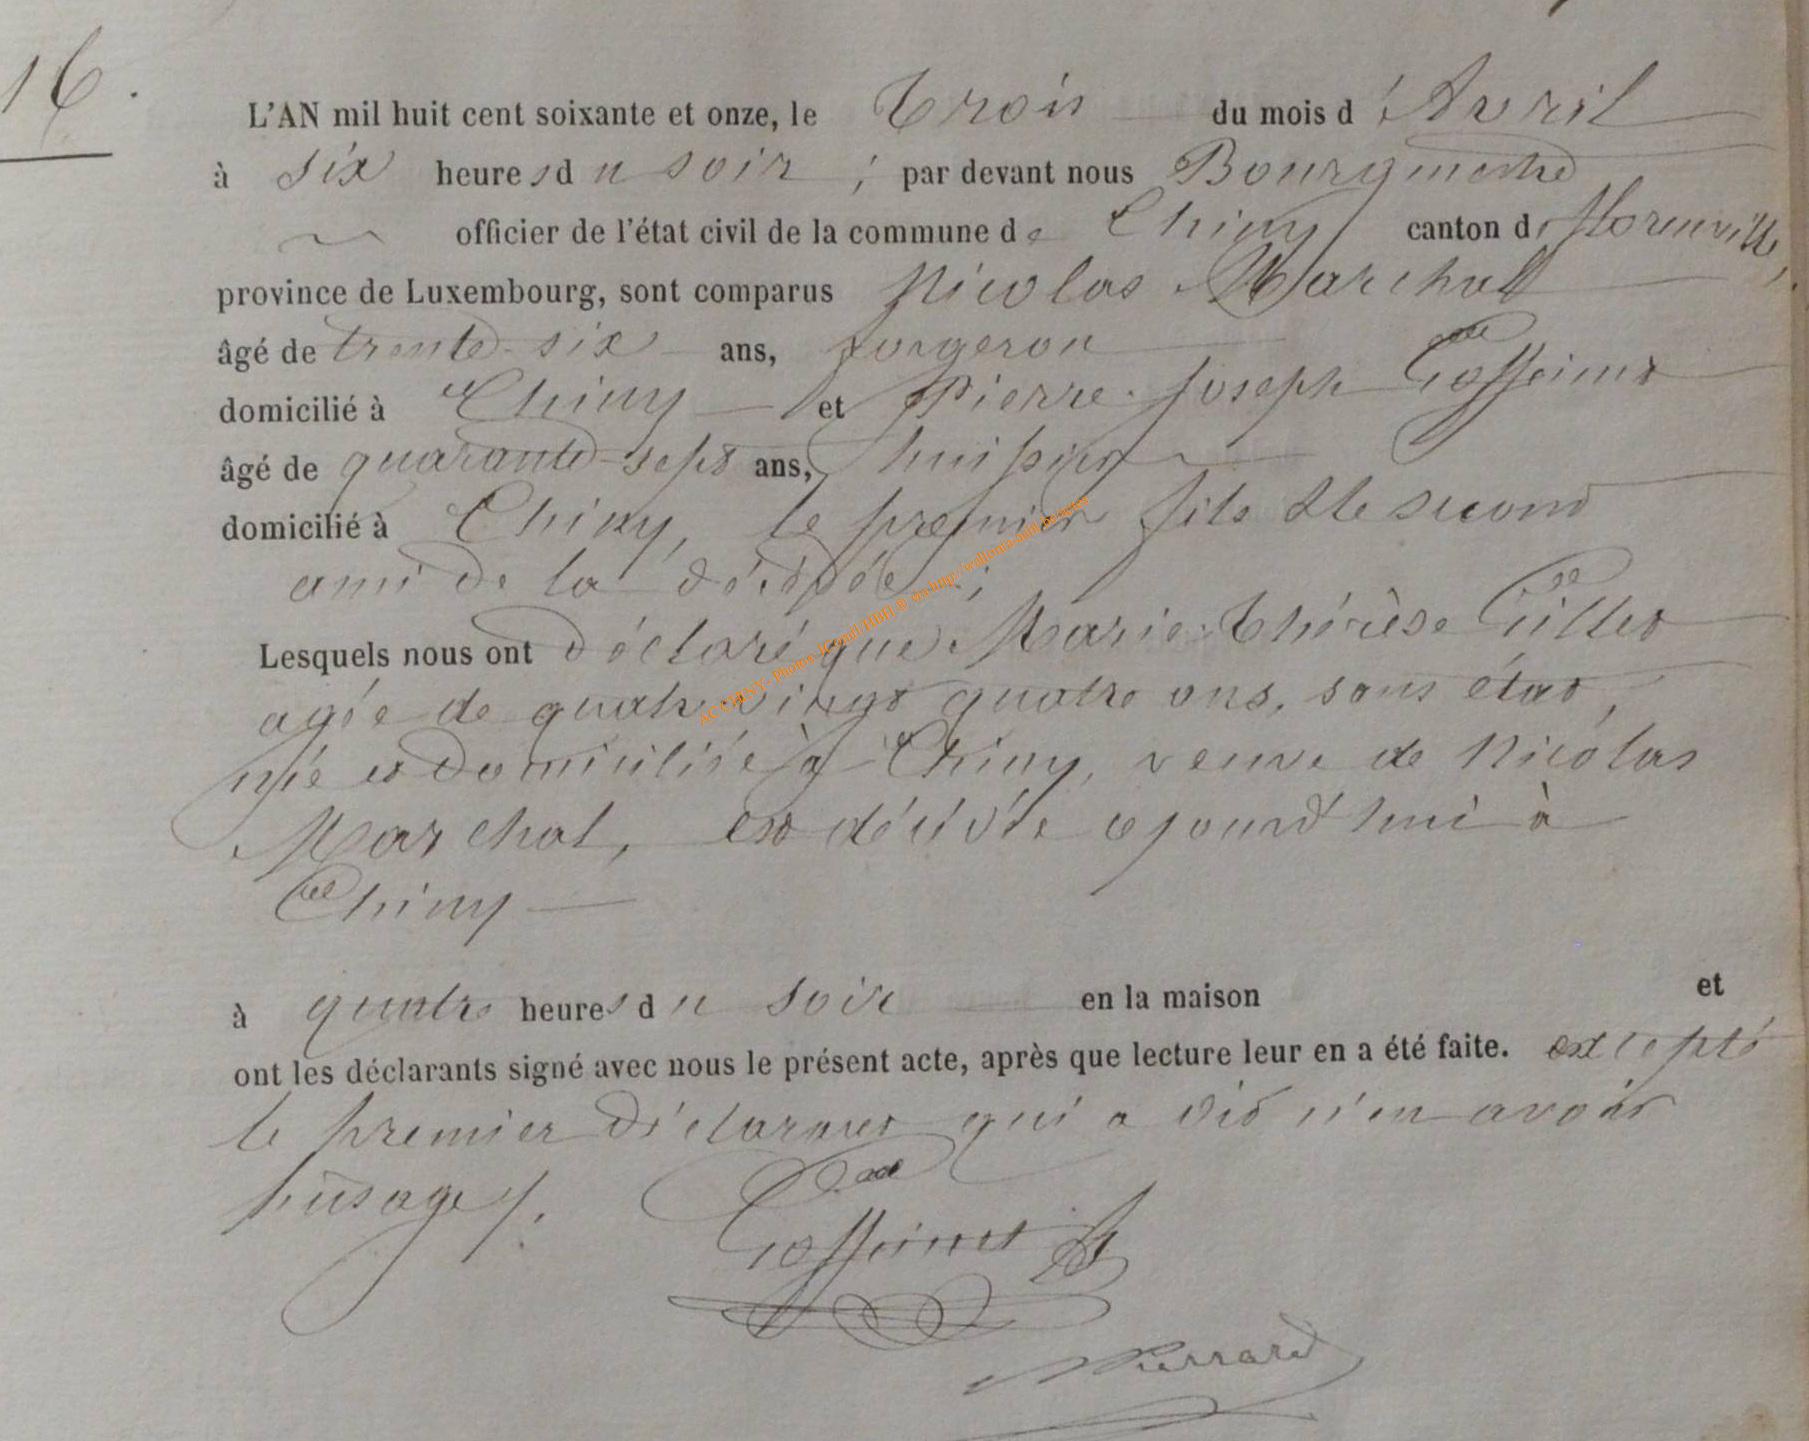 16.
L'AN mil huit cent soixante et onze, le trois du mois d'Avril
à six heures du soir ; par devant nous Bourgmestre
officier de l'état civil de la commune de Chiny canton de Florenville,
province de Luxembourg, sont comparus Nicolas Marchal
âgé de trente-six ans, forgeron
domicilié à Chiny et Pierre-Joseph Gosseinet
âgé de quarante-sept ans, huissier
domicilié à Chiny, le premier fils & le second
ami de la décédée ;
Lesquels nous ont déclaré que Marie-Thérèse Gillet
agée de quatre-vingt quatre ans, sans état,
née et domiciliée à Chiny, veuve de Nicolas
Marchal, est décédée ajourd'hui à
Chiny
à quatre heures du soir en la maison et
ont les déclarants signé avec nous le présent acte, après que lecture leur en a été faite. excepté
le premier déclarant qui a dit n'en avoir
l'usage.
Gosseinet
Pierrard
AC CHINY- Photos JConil/HDH ® via http://wallonia-asbl.be/actes